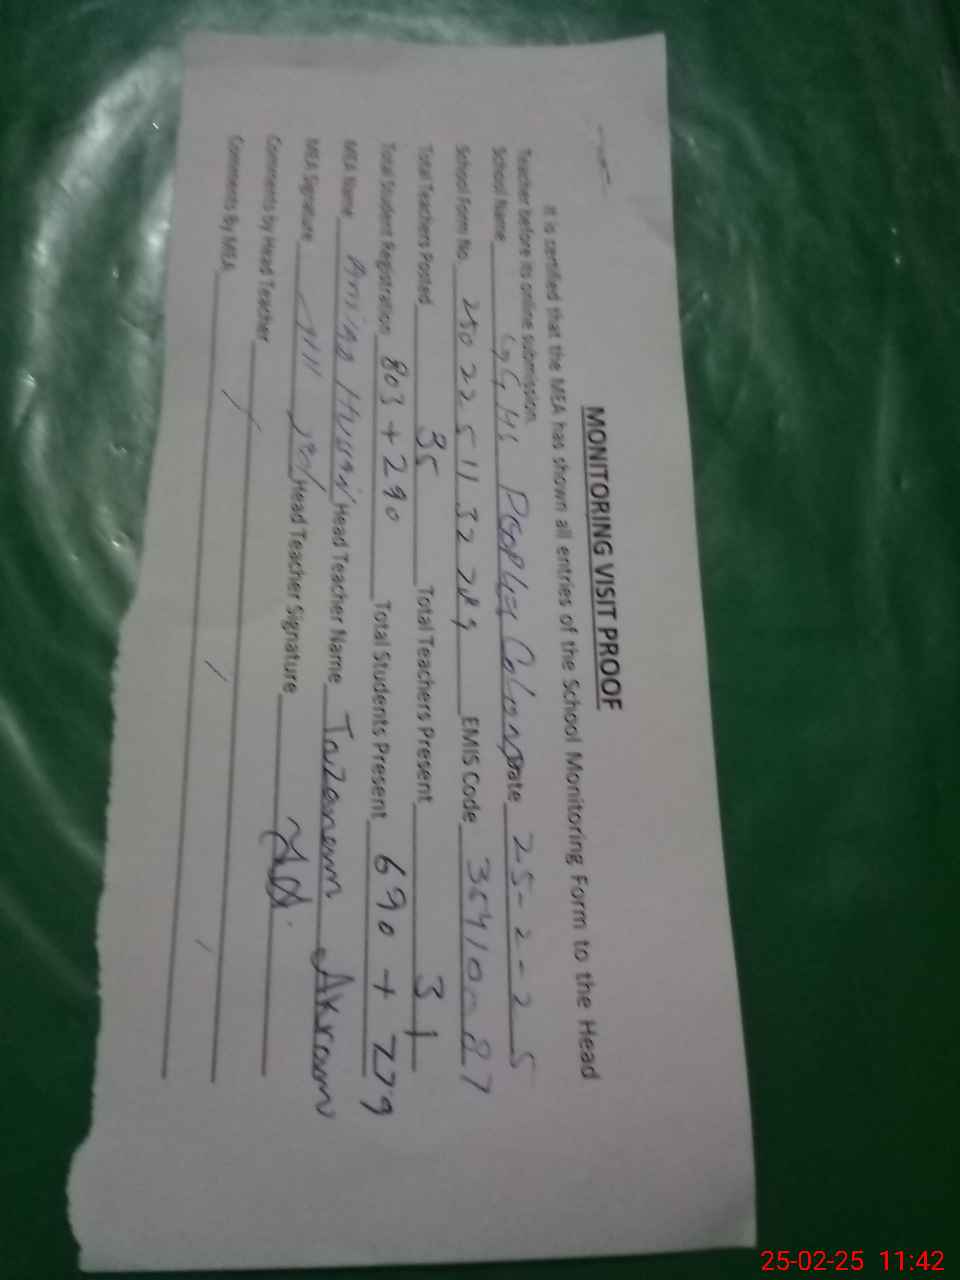 MONITORING VISIT PROOF
It is certified that the MEA has shown all entries of the School Monitoring Form to the Head
Teacher before its online submission.
School Name GGHS Peoples Colony Date 25-2-25
School Form No. 2502251132289 EMIS Code
Total Teachers Posted 35 Total Teachers Present 31
Total Student Registration 803 + 290 Total Students Present 690 + 279
MEA Name Head Teacher Name Tazeneem Akram
MEA Signature Head Teacher Signature
Comments by Head Teacher
Comments By MEA
25-02-25 11:42